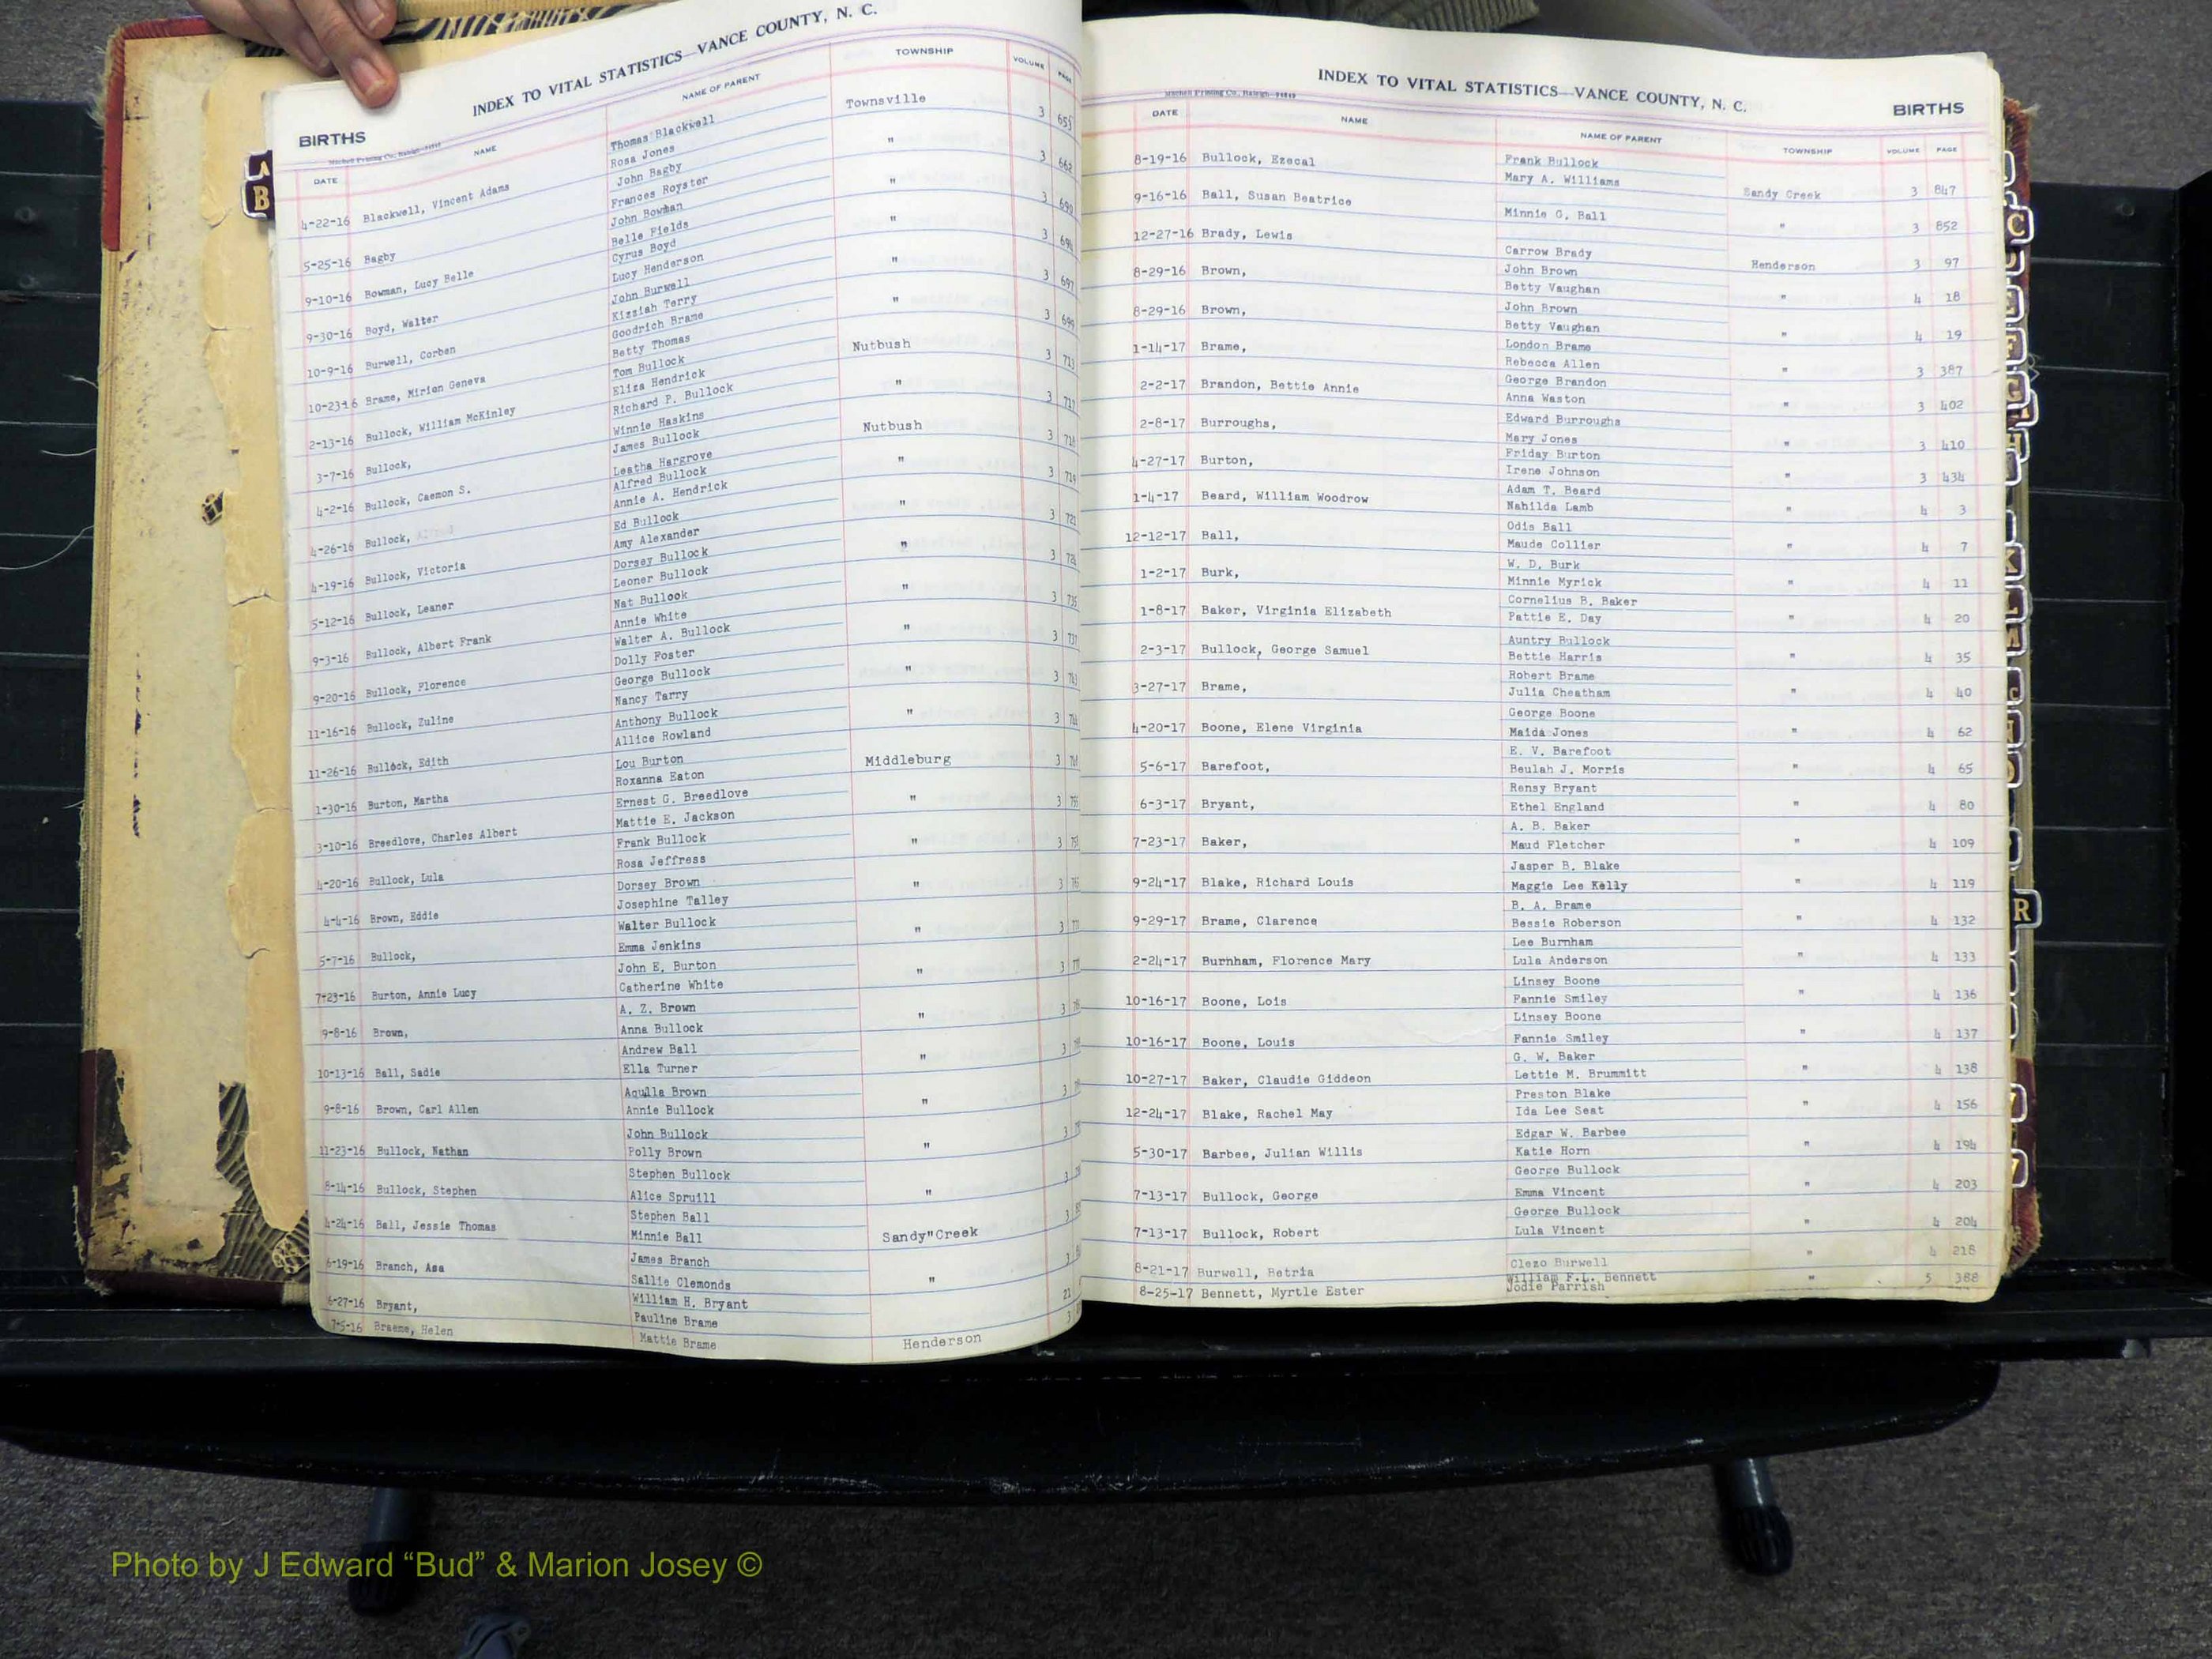 INDEX TO VITAL STATISTICS—VANCE COUNTY, N. C.
BIRTHS
Mitchell Printing Co., Raleigh
DATE NAME NAME OF PARENT TOWNSHIP VOLUME PAGE
4-22-16 Blackwell, Vincent Adams Thomas Blackwell Townsville 3 655
Rosa Jones
5-25-16 Bagby John Bagby " 3 662
Frances Royster
9-10-16 Bowman, Lucy Belle John Bowman " 3 690
Belle Fields
9-30-16 Boyd, Walter Cyrus Boyd " 3
Lucy Henderson
10-9-16 Burwell, Corben John Burwell " 3 697
Kizziah Terry
10-23-16 Brame, Mirion Geneva Goodrich Brame " 3 699
Betty Thomas
2-13-16 Bullock, William McKinley Tom Bullock Nutbush 3 713
Eliza Hendrick
3-7-16 Bullock, Richard P. Bullock " 3 717
Winnie Haskins
4-2-16 Bullock, Caemon S. James Bullock Nutbush 3
Leatha Hargrove
4-26-16 Bullock, Alfred Bullock " 3
Annie A. Hendrick
4-19-16 Bullock, Victoria Ed Bullock " 3 721
Amy Alexander
5-12-16 Bullock, Leaner Dorsey Bullock " 3
Leoner Bullock
9-3-16 Bullock, Albert Frank Nat Bullook " 3 735
Annie White
9-20-16 Bullock, Florence Walter A. Bullock " 3 737
Dolly Foster
11-16-16 Bullock, Zuline George Bullock " 3
Nancy Tarry
11-26-16 Bullock, Edith Anthony Bullock " 3
Allice Rowland
1-30-16 Burton, Martha Lou Burton Middleburg 3
Roxanna Eaton
3-10-16 Breedlove, Charles Albert Ernest G. Breedlove " 3
Mattie E. Jackson
4-20-16 Bullock, Lula Frank Bullock " 3
Rosa Jeffress
4-4-16 Brown, Eddie Dorsey Brown " 3
Josephine Talley
5-7-16 Bullock, Walter Bullock " 3
Emma Jenkins
7-23-16 Burton, Annie Lucy John E. Burton " 3
Catherine White
9-8-16 Brown, A. Z. Brown " 3
Anna Bullock
10-13-16 Ball, Sadie Andrew Ball " 3
Ella Turner
9-8-16 Brown, Carl Allen Aquilla Brown " 3
Annie Bullock
11-23-16 Bullock, Nathan John Bullock " 3
Polly Brown
8-14-16 Bullock, Stephen Stephen Bullock " 3
Alice Spruill
4-24-16 Ball, Jessie Thomas Stephen Ball Sandy"Creek 3
Minnie Ball
6-19-16 Branch, Asa James Branch " 3
Sallie Clemonds
6-27-16 Bryant, William H. Bryant
Pauline Brame
7-5-16 Braeme, Helen Mattie Brame Henderson 3
INDEX TO VITAL STATISTICS—VANCE COUNTY, N. C.
BIRTHS
Mitchell Printing Co., Raleigh
DATE NAME NAME OF PARENT TOWNSHIP VOLUME PAGE
8-19-16 Bullock, Ezecal Frank Bullock
Mary A. Williams Sandy Creek 3 847
9-16-16 Ball, Susan Beatrice
Minnie G. Ball " 3 852
12-27-16 Brady, Lewis
Carrow Brady Henderson 3 97
8-29-16 Brown, John Brown
Betty Vaughan " 4 18
8-29-16 Brown, John Brown
Betty Vaughan " 4 19
1-14-17 Brame, London Brame
Rebecca Allen " 3 387
2-2-17 Brandon, Bettie Annie George Brandon
Anna Waston " 3 402
2-8-17 Burroughs, Edward Burroughs
Mary Jones " 3 410
4-27-17 Burton, Friday Burton
Irene Johnson " 3 434
1-4-17 Beard, William Woodrow Adam T. Beard
Nahilda Lamb " 4 3
12-12-17 Ball, Odis Ball
Maude Collier " 4 7
1-2-17 Burk, W. D. Burk
Minnie Myrick " 4 11
1-8-17 Baker, Virginia Elizabeth Cornelius B. Baker
Pattie E. Day " 4 20
2-3-17 Bullock, George Samuel Auntry Bullock
Bettie Harris " 4 35
3-27-17 Brame, Robert Brame
Julia Cheatham " 4 40
4-20-17 Boone, Elene Virginia George Boone
Maida Jones " 4 62
5-6-17 Barefoot, E. V. Barefoot
Beulah J. Morris " 4 65
6-3-17 Bryant, Rensy Bryant
Ethel England " 4 80
7-23-17 Baker, A. B. Baker
Maud Fletcher " 4 109
9-24-17 Blake, Richard Louis Jasper B. Blake
Maggie Lee Kelly " 4 119
9-29-17 Brame, Clarence B. A. Brame
Bessie Roberson " 4 132
2-24-17 Burnham, Florence Mary Lee Burnham
Lula Anderson " 4 133
10-16-17 Boone, Lois Linsey Boone
Fannie Smiley " 4 136
10-16-17 Boone, Louis Linsey Boone
Fannie Smiley " 4 137
10-27-17 Baker, Claudie Giddeon G. W. Baker
Lettie M. Brummitt " 4 138
12-24-17 Blake, Rachel May Preston Blake
Ida Lee Seat " 4 156
5-30-17 Barbee, Julian Willis Edgar W. Barbee
Katie Horn " 4 194
7-13-17 Bullock, George George Bullock
Emma Vincent " 4 203
7-13-17 Bullock, Robert George Bullock
Lula Vincent " 4 204
8-21-17 Burwell, Betria Clezo Burwell " 4 218
8-25-17 Bennett, Myrtle Ester William F.L. Bennett " 5 388
Jodie Parrish
A
B
C
F
G
H
K
L
R
Photo by J Edward “Bud” & Marion Josey ©